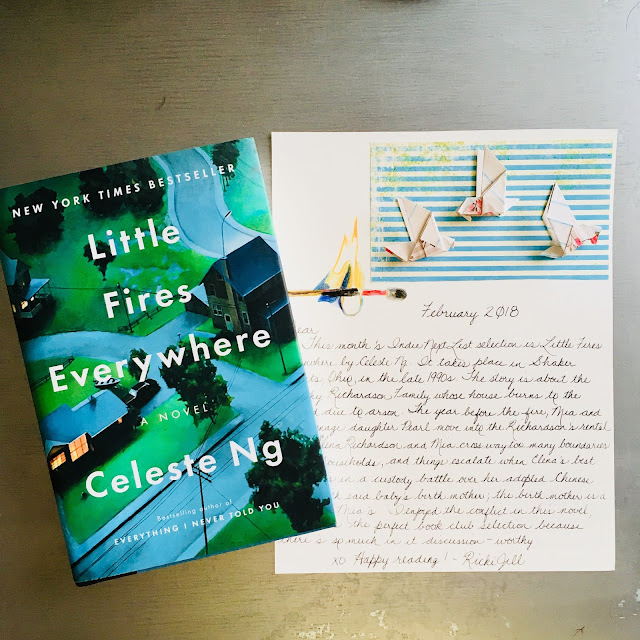 NEW YORK TIMES BESTSELLER
Little
Fires
Everywhere
A NOVEL
Celeste Ng
Bestselling author of
EVERYTHING I NEVER TOLD YOU
February 2018
ear
This month's Indie Next List selection is Little Fires
where by Celeste Ng. It takes place in Shaker
ts, Ohio, in the late 1990s. The story is about the
Richardson Family whose house burns to the
d due to arson. The year before the fire, Mia and
nage daughter Pearl move into the Richardson's rental
lena Richardson and Mia cross way too many boundaries
ouseholds, and things escalate when Elena's best
s in a custody battle over her adopted Chinese
d said baby's birth mother; the birth mother is a
Mia's. I enjoyed the conflict in this novel,
the perfect book club selection because
there's so much in it discussion-worthy
xo Happy reading! - Ricki Jill